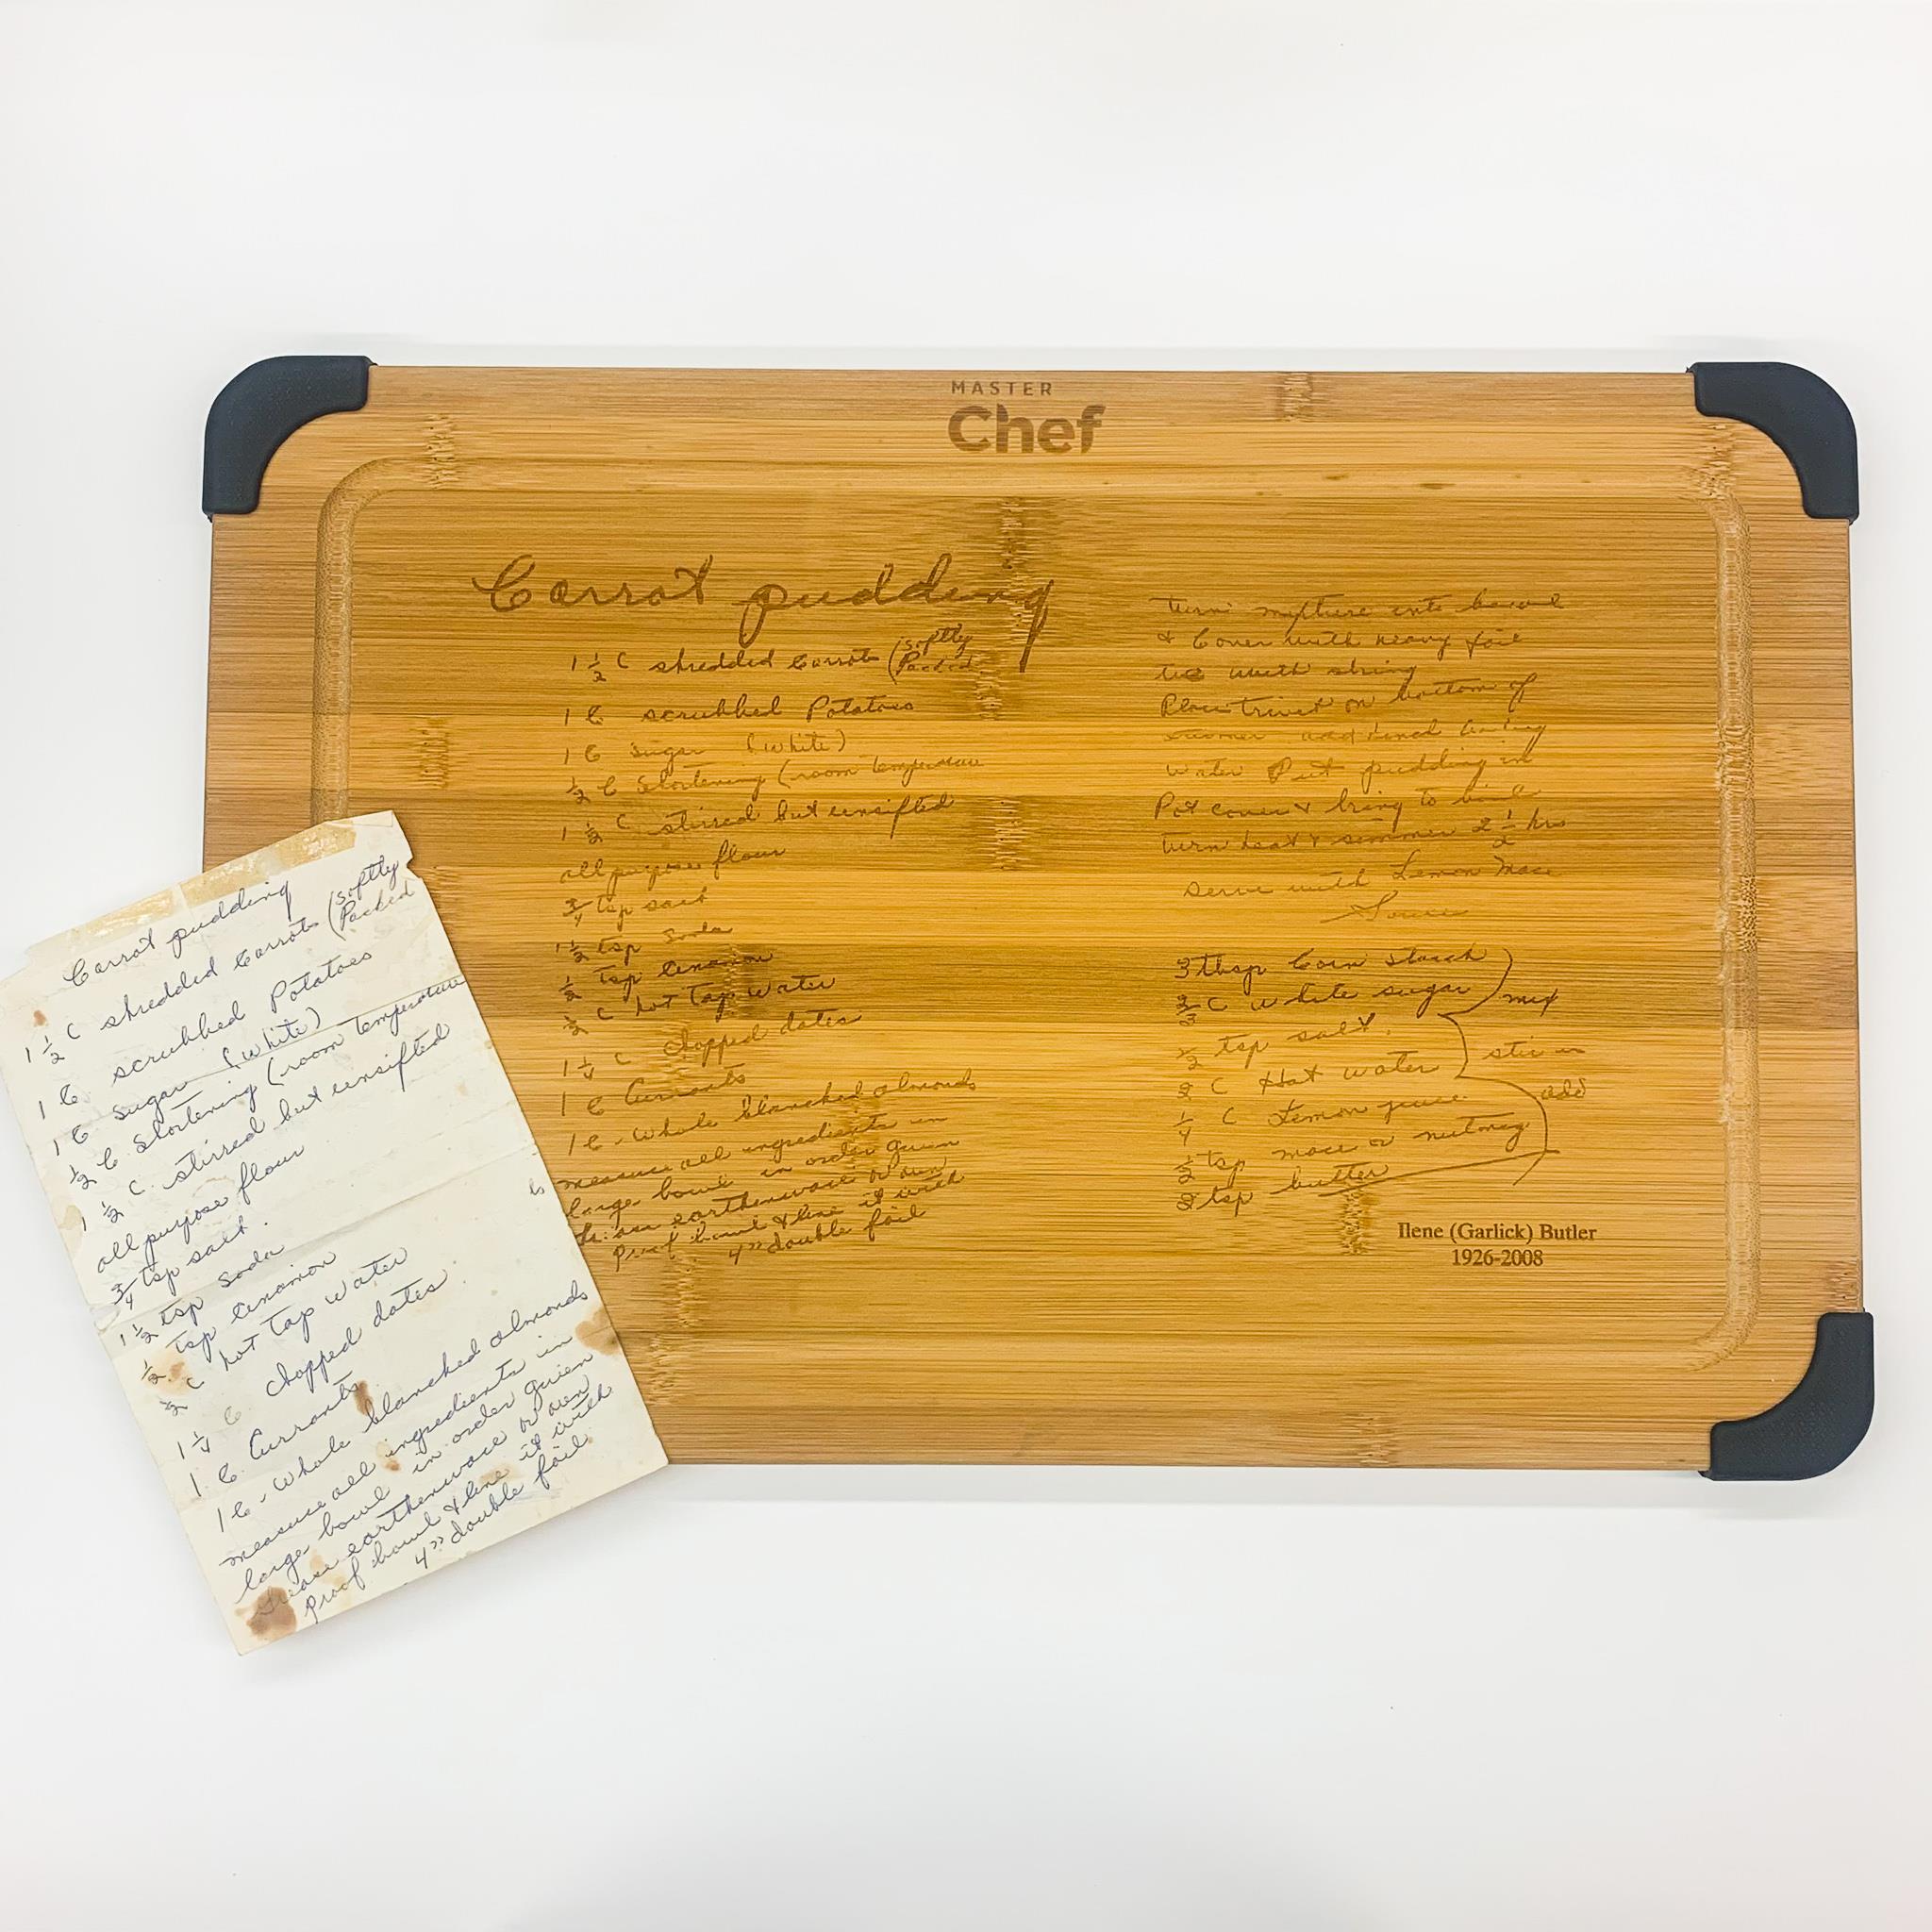 MASTER
Chef
Carrot pudding
1 1/2 C shredded Carrots (softly
Packed
1 C scrubbed Potatoes
1 C sugar (white)
1/2 C Shortening (room temperature
1 1/2 C stirred but unsifted
all purpose flour
3/4 tsp salt
1 1/2 tsp Soda
1/2 tsp Cinamon
1/2 C hot Tap water
1 1/4 C chopped dates
1 C Currants
1 C - Whole blanched almonds
measure all ingredients in
large bowl in order given
Grease earthenware or oven
Proof bowl & line it with
4" double foil
turn mixture into bowl
& Cover with heavy foil
tie with string
Place trivet on bottom of
steamer add
water Put pudding in
Pot cover & bring to boil
turn heat & simmer 2 1/2 hrs
serve with Lemon Mace
Sauce
3 tbsp Corn starch
2/3 C white sugar ) mix
1/2 tsp salt.
2 C Hot water stir in
1/4 C Lemon juice add
1/2 tsp mace or nutmeg
2 tsp butter
Ilene (Garlick) Butler
1926-2008
Carrot pudding
1 1/2 C shredded Carrots (softly
Packed
1 C. scrubbed Potatoes
1 C sugar (white)
1/2 C. Shortening (room temperature
1 1/2 C. stirred but unsifted
all purpose flour
3/4 tsp salt.
1 1/2 tsp Soda
1/2 tsp Cinamon
1/2 C hot Tap water
1 1/4 C chopped dates
1 C. Currants
1 C - Whole blanched almonds
measure all ingredients in
large bowl in order given
Grease earthenware or oven
Proof bowl & line it with
4" double foil